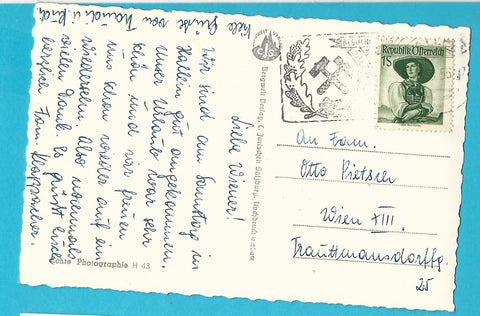 Liebe Wiener!
Wir sind am Sonntag in
Hallein gut angekommen.
Unser Urlaub war sehr
schön und wir freuen
uns schon wieder auf ein
Wiedersehn. Also nochmals
vielen Dank. Es grüßt Euch
Fam.
viele Grüße von u.
Bergwelt Verlag, C. Jurischek Salzburg, Nachdruck verboten
Echte Photographie H 43
Republik Österreich
1S
An Fam.
Otto Pietsch
Wien XIII.
Trauttmansdorffg.
25